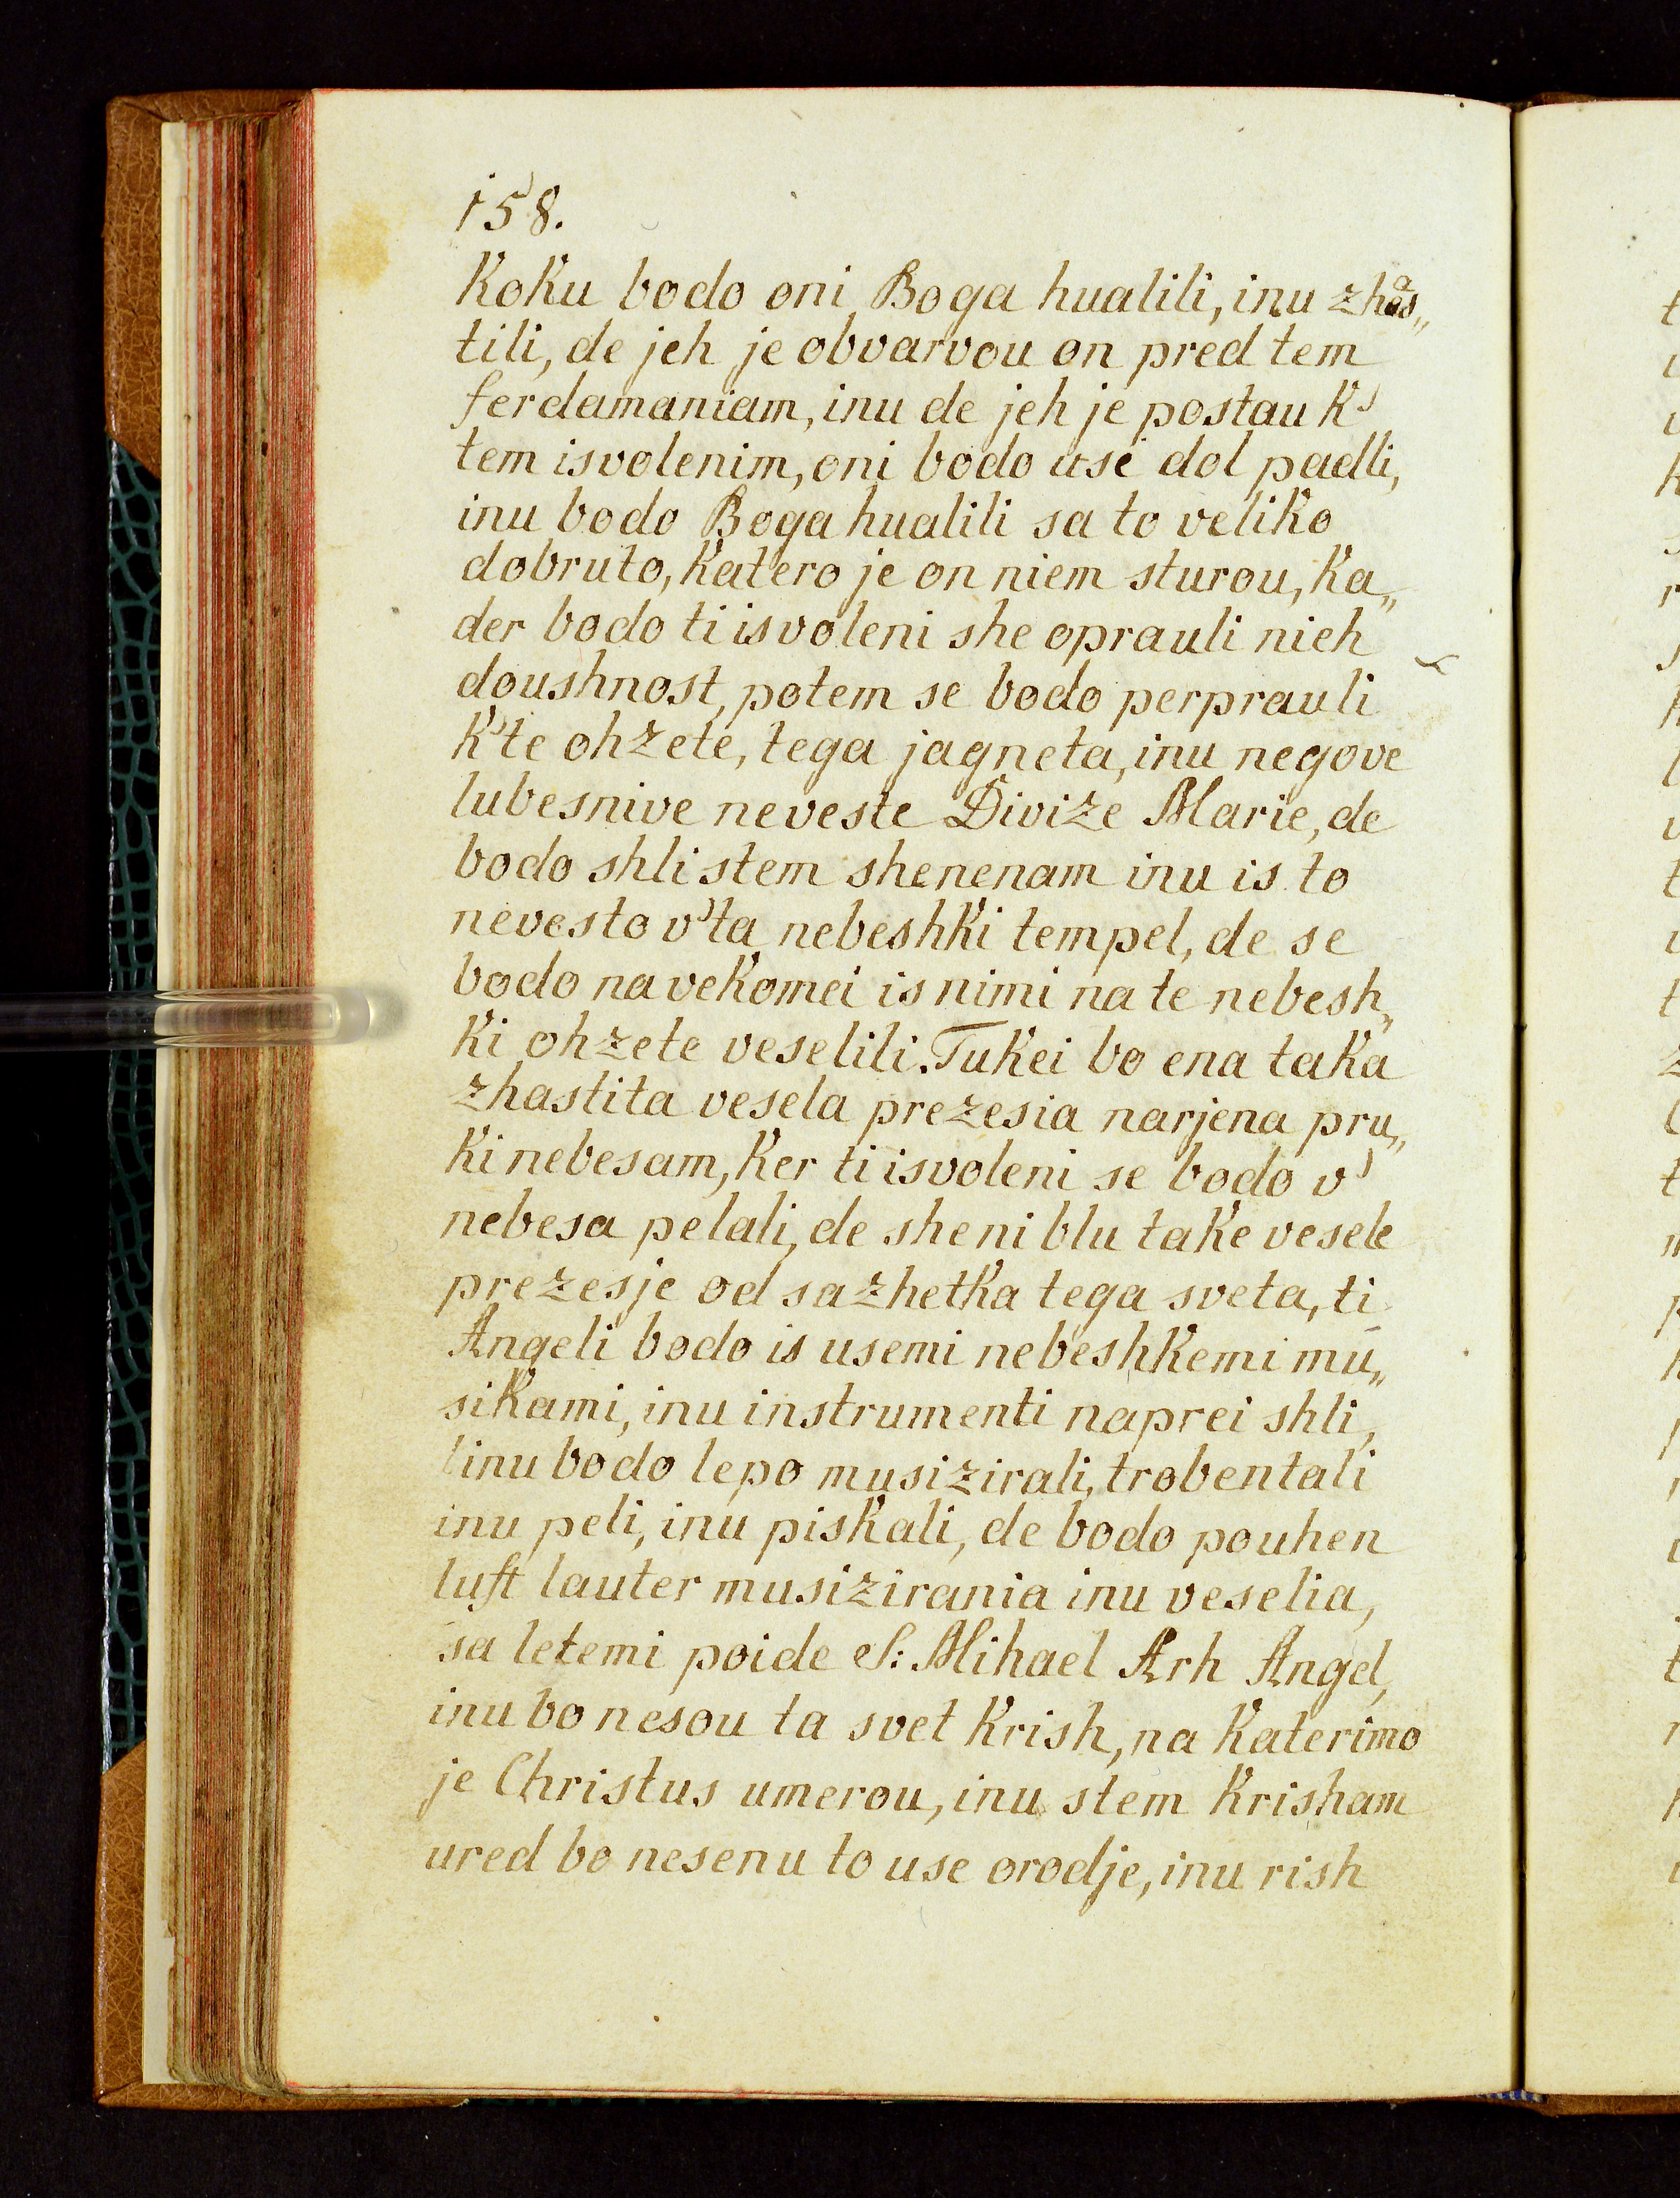 158.
Koku bodo oni Boga hualili, inu zhas„
tili, de jeh je obvarvou on pred tem
ferdamaniam, inu de jeh je postau k'
tem isvolenim, oni bodo usi dol padli,
inu bodo Boga hualili sa to veliko
dobruto, katero je on niem sturou, ka„
der bodo ti isvoleni she oprauli nieh
doushnost, potem se bodo perprauli
k'te ohzete, tega jagneta, inu negove
lubesnive neveste Divize Marie, de
bodo shli stem shenenam inu is to
nevesto v'ta nebeshki tempel, de se
bodo na vekomei is nimi na te nebesh„
ki ohzete veselili. Tukei bo ena taka
zhastita vesela prezesia narjena pru„
ki nebesam, ker ti isvoleni se bodo v'
nebesa pelali, de she ni blu take vesele
prezesje od sazhetka tega sveta, ti
Angeli bodo is usemi nebeshkemi mu„
sikami, inu instrumenti naprei shli,
inu bodo lepo musizirali, trobentali
inu peli, inu piskali, de bodo pouhen
luft lauter musizirania inu veselia,
sa letemi poide S: Mihael Arh Angel,
inu bo nesou ta svet krish, na katerimo
je Christus umerou, inu stem krisham
ured bo nesenu to use orodje, inu rish